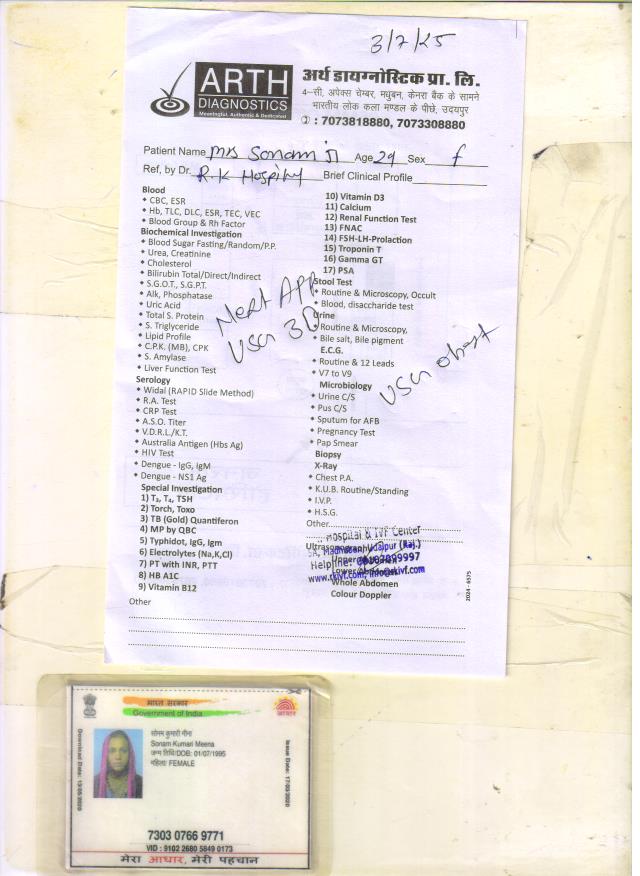 3/7/25
ARTH
DIAGNOSTICS
Meaningful, Authentic & Dedicated
अर्थ डायग्नोस्टिक प्रा. लि.
4-सी, अपेक्स चेम्बर, मधुबन, केनरा बैंक के सामने
भारतीय लोक कला मण्डल के पीछे, उदयपुर
: 7073818880, 7073308880
Patient Name Mrs Sonam Age 29 Sex f
Ref, by Dr. R.K Hospital Brief Clinical Profile
Blood
CBC, ESR
Hb, TLC, DLC, ESR, TEC, VEC
Blood Group & Rh Factor
Biochemical Investigation
Blood Sugar Fasting/Random/P.P.
Urea, Creatinine
Cholesterol
Bilirubin Total/Direct/Indirect
S.G.O.T., S.G.P.T.
Alk, Phosphatase
Uric Acid
Total S. Protein
S. Triglyceride
Lipid Profile
C.P.K. (MB), CPK
S. Amylase
Liver Function Test
Serology
Widal (RAPID Slide Method)
R.A. Test
CRP Test
A.S.O. Titer
V.D.R.L./K.T.
Australia Antigen (Hbs Ag)
HIV Test
Dengue - IgG, IgM
Dengue - NS1 Ag
Special Investigation
1) T₃, T₄, TSH
2) Torch, Toxo
3) TB (Gold) Quantiferon
4) MP by QBC
5) Typhidot, IgG, Igm
6) Electrolytes (Na,K,Cl)
7) PT with INR, PTT
8) HB A1C
9) Vitamin B12
Other
10) Vitamin D3
11) Calcium
12) Renal Function Test
13) FNAC
14) FSH-LH-Prolaction
15) Troponin T
16) Gamma GT
17) PSA
Stool Test
Routine & Microscopy, Occult
Blood, disaccharide test
Urine
Routine & Microscopy,
Bile salt, Bile pigment
E.C.G.
Routine & 12 Leads
V7 to V9
Microbiology
Urine C/S
Pus C/S
Sputum for AFB
Pregnancy Test
Pap Smear
Biopsy
X-Ray
Chest P.A.
K.U.B. Routine/Standing
I.V.P.
H.S.G.
Other
Ultrasonography
Whole Abdomen
Colour Doppler
Next App
USG 3D
USG obest
Hospital & IVF Center
Udaipur (Raj.)
Helpline:
2024-6575
भारत सरकार
Government of India
आधार
सोनम कुमारी मीना
Sonam Kumari Meena
जन्म तिथि/DOB: 01/07/1995
महिला/ FEMALE
Download Date: 13/05/2020
Issue Date: 17/05/2020
7303 0766 9771
VID : 9102 2680 5849 0173
मेरा आधार, मेरी पहचान